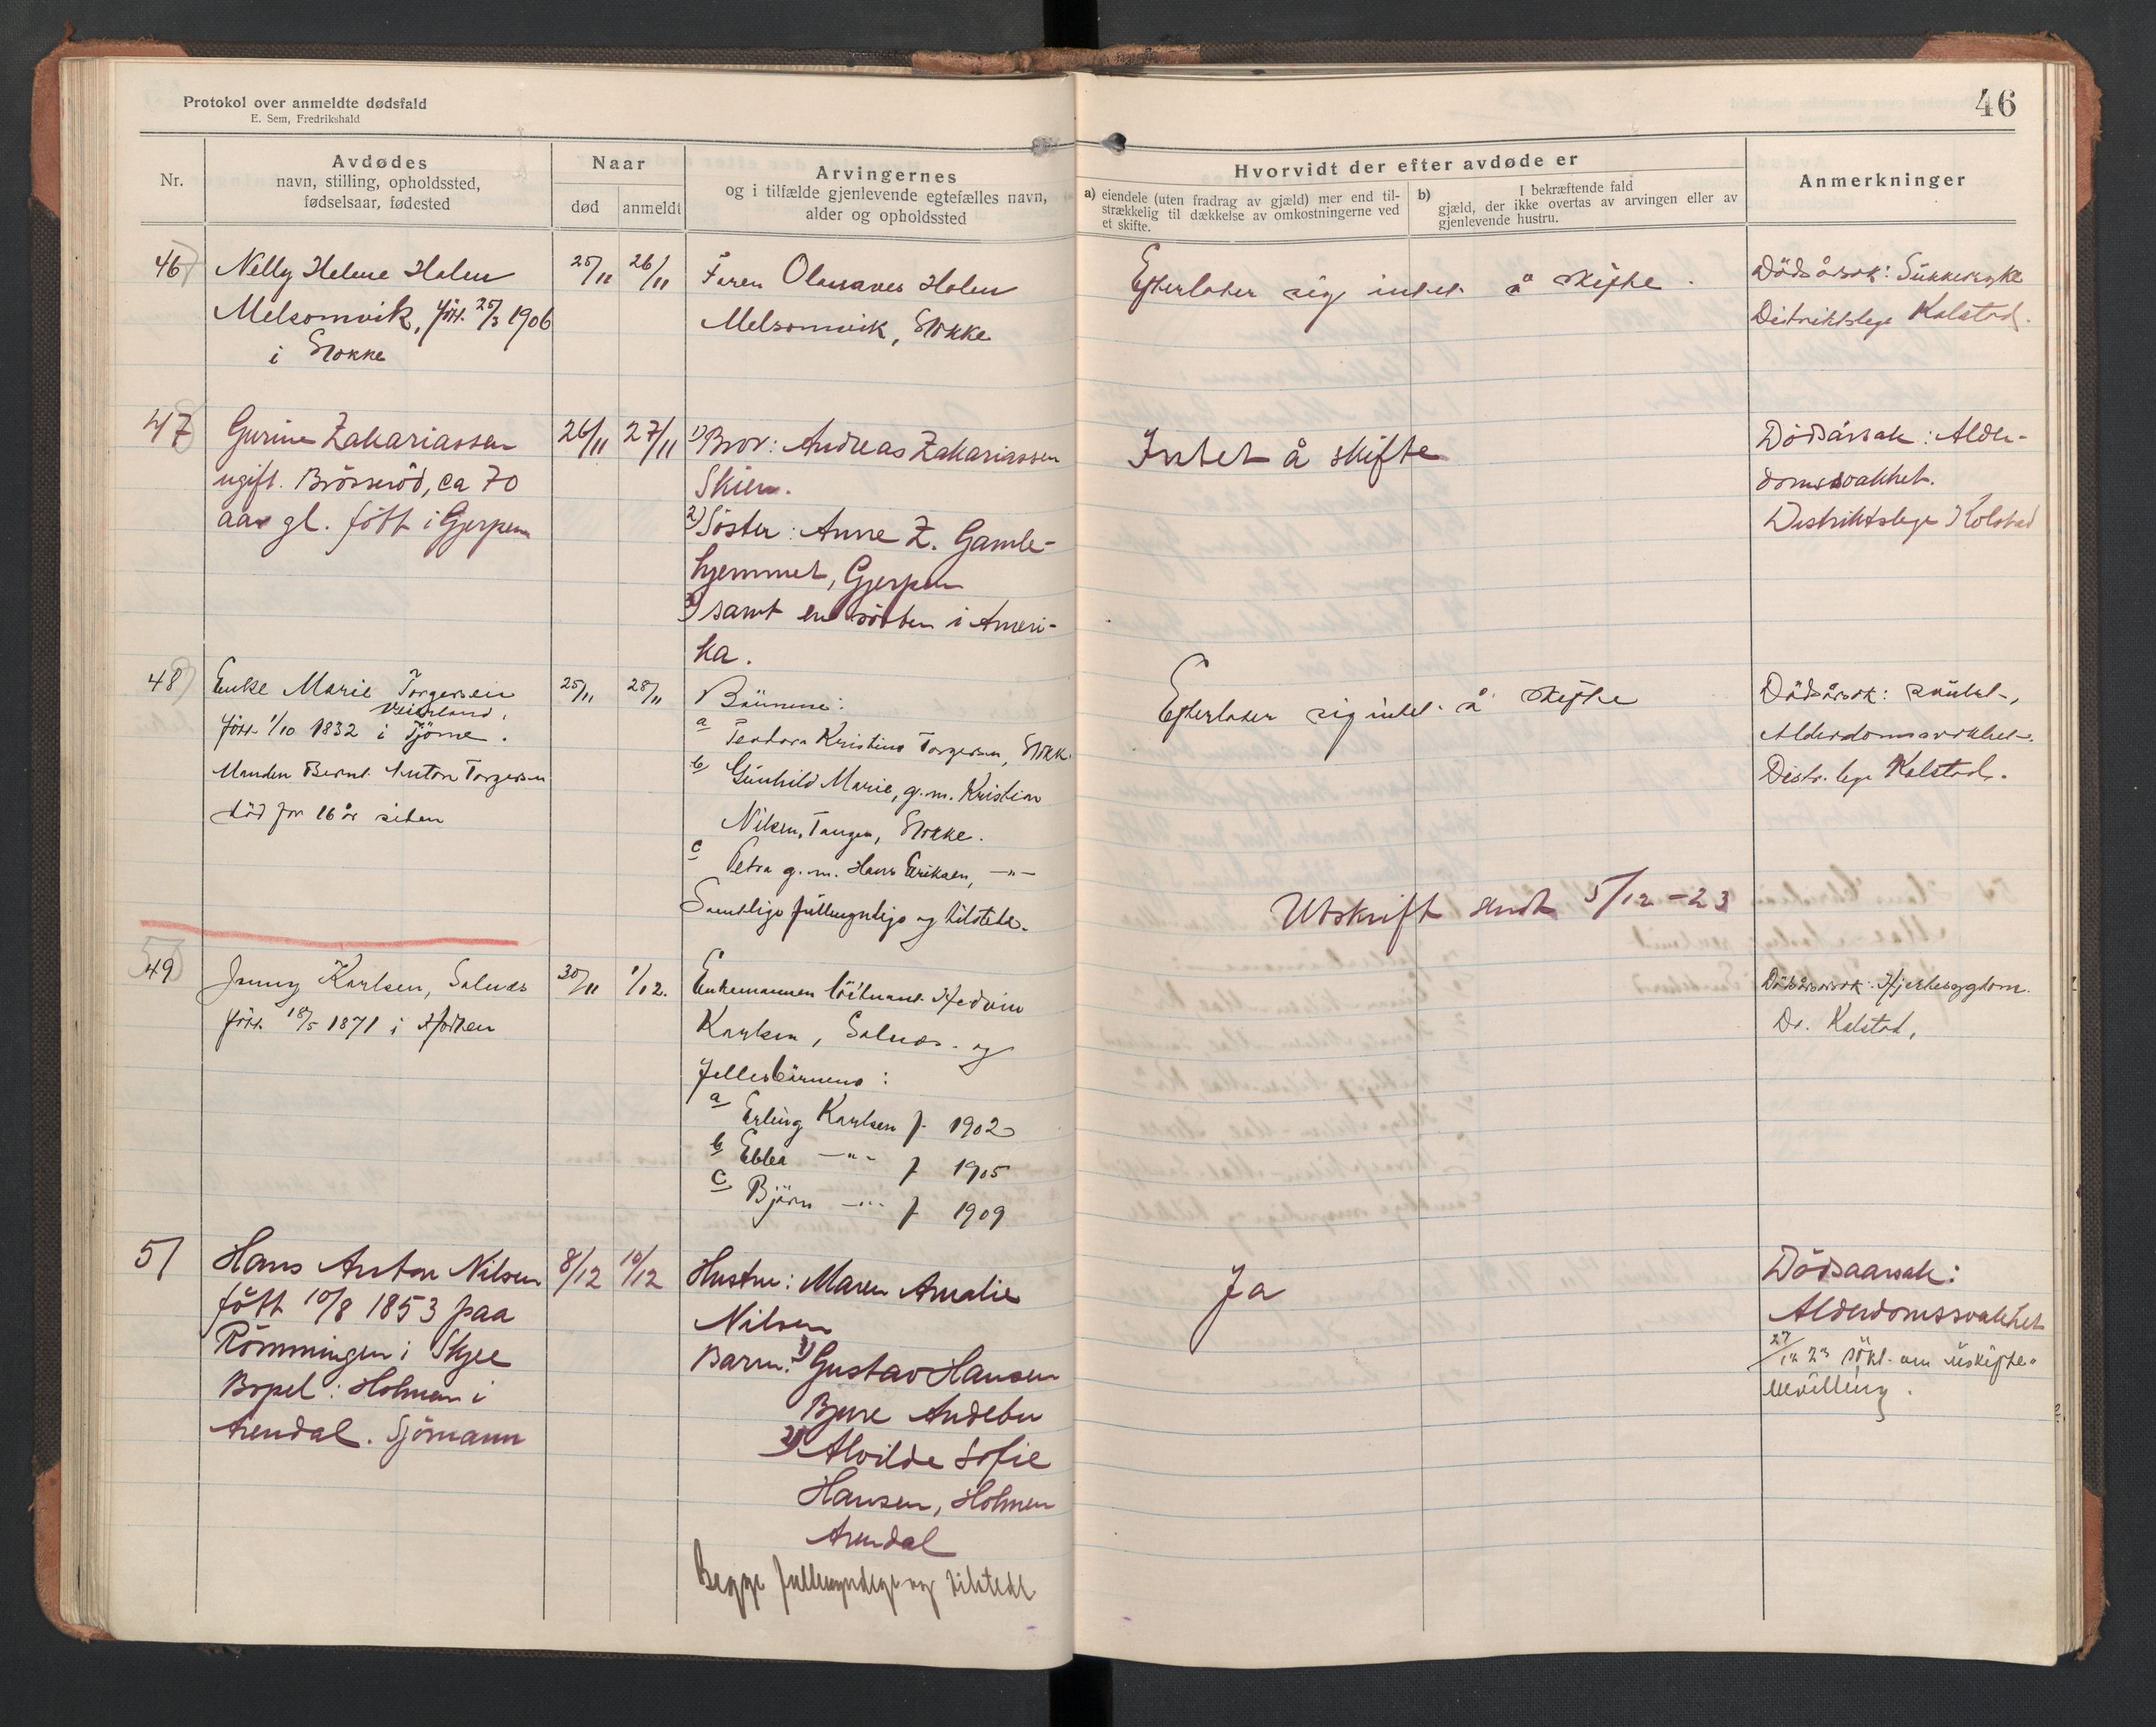 Protokol over anmeldte dødsfald
E. Sem, Fredrikshald
46
Nr.
Avdødes
navn, stilling, opholdssted,
fødselsaar, fødested
Naar
død
anmeldt
Arvingernes
og i tilfælde gjenlevende egtefælles navn,
alder og opholdssted
Hvorvidt der efter avdøde er
a) eiendele (uten fradrag av gjæld) mer end til-
strækkelig til dækkelse av omkostningerne ved
et skifte.
b) I bekræftende fald
gjæld, der ikke overtas av arvingen eller av
gjenlevende hustru.
Anmerkninger
46
Nelly Helene Holen
Melsomvik, født 25/3 1906
i Stokke
25/11
26/11
Faren Olanaves Holen
Melsomvik, Stokke
Efterlater sig intet å skifte.
Dödsårsak: Sukkersyke
Distriktslege Kolstad.
47
Gurine Zakariassen
ugift. Brösseröd, ca 70
aar gl. fött i Gjerpen
26/11
27/11
1) Bror: Andreas Zakariassen
Skien.
2) Söster: Anne Z. Gamle-
hjemmet, Gjerpen
3) samt en söster i Ameri-
ka.
Intet å skifte
Dödsårsak: Alder-
domssvakhet.
Distriktslege Kolstad
48
Enke Marie Torgersen
Veierland,
født 1/10 1832 i Tjöme.
Manden Bernt Anton Torgersen
död for 16 år siden
25/11
28/11
Börnene:
a Teodora Kristine Torgersen, Stokke
b Gunhild Marie, g.m. Kristian
Nilsen, Tangen, Stokke.
c Petra g.m. Hans Eriksen, -"-
Samtlige fullmyndige og tilstede.
Efterlater sig intet å skifte
Utskrift sendt 5/12-23
Dödsårsak: snutet-,
Alderdomssvakhet.
Distr. lege Kolstad.
49
Jenny Karlsen, Solnes
født 18/5 1871 i Horten
30/11
1/12.
Enkemannen löitnant Hedvin
Karlsen, Solnes. og
Fellesbarnene:
a Erling Karlsen f. 1902
b Ebba -"- f 1905
c Björn -"- f 1909
Dödsårsak: Hjertesygdom.
Dr. Kolstad,
51
Hans Anton Nilsen
fött 10/8 1853 paa
Römmingen i Skjee
Bopel: Holmen i
Arendal. Sjömann
8/12
10/12
Hustru: Maren Amalie
Nilsen
Barn: 1) Gustav Hansen
Bjere Andebu
2) Alvilde Sofie
Hansen, Holmen
Arendal
Begge fullmyndige og tilstede
Ja
Dödsaarsak:
Alderdomssvakhet
27/12 23 sökt om uskifte-
bevilling.